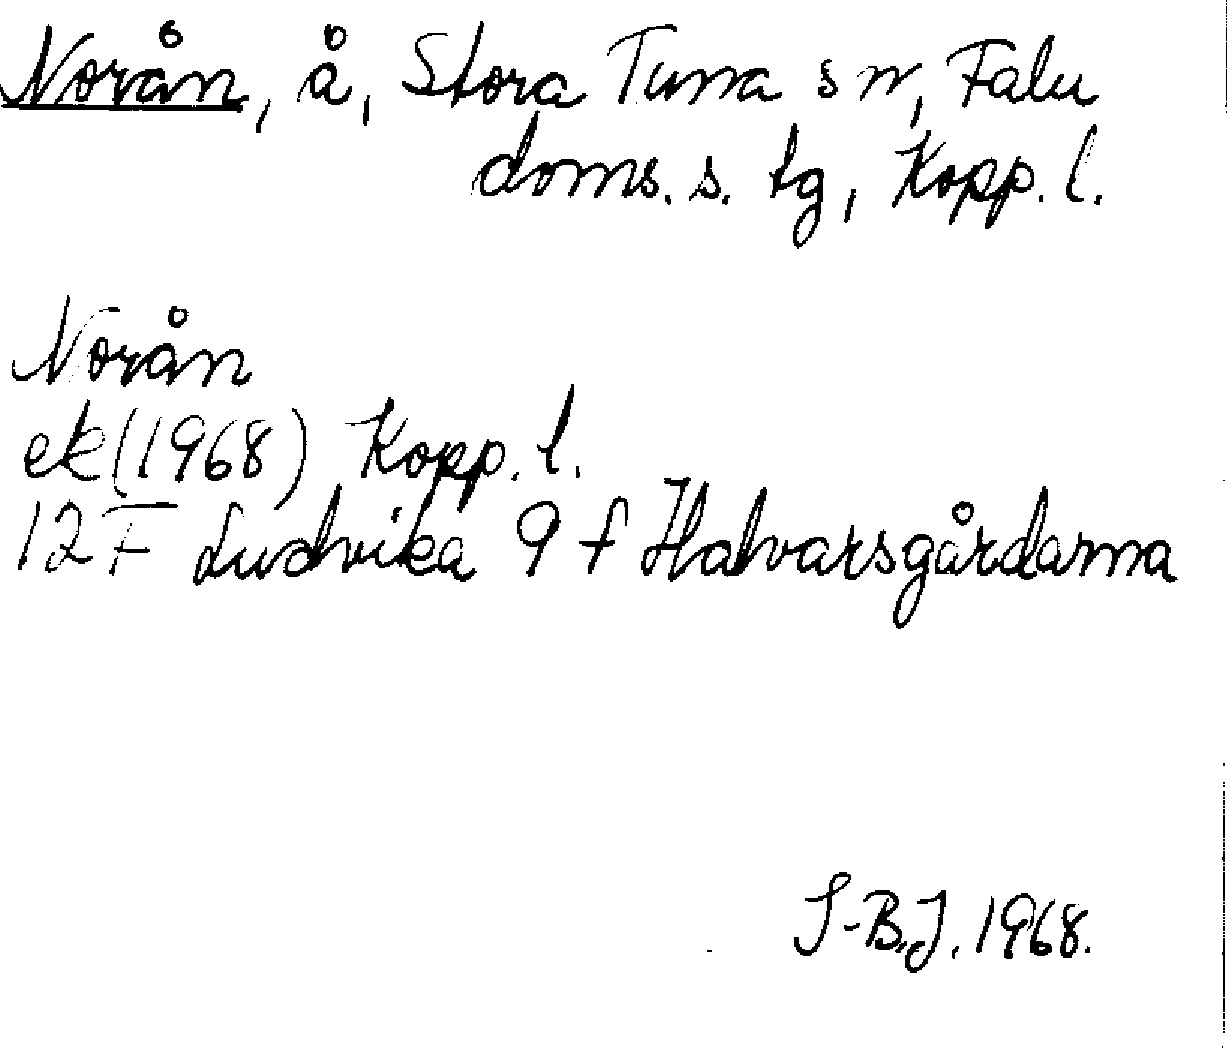 Norån, å, Stora Tuna sn, Falu
doms. s. tg, Kopp. l.
Norån
ek (1968) Kopp. l.
12 F Ludvika 9 f Halvarsgårdarna
S-B.J. 1968.